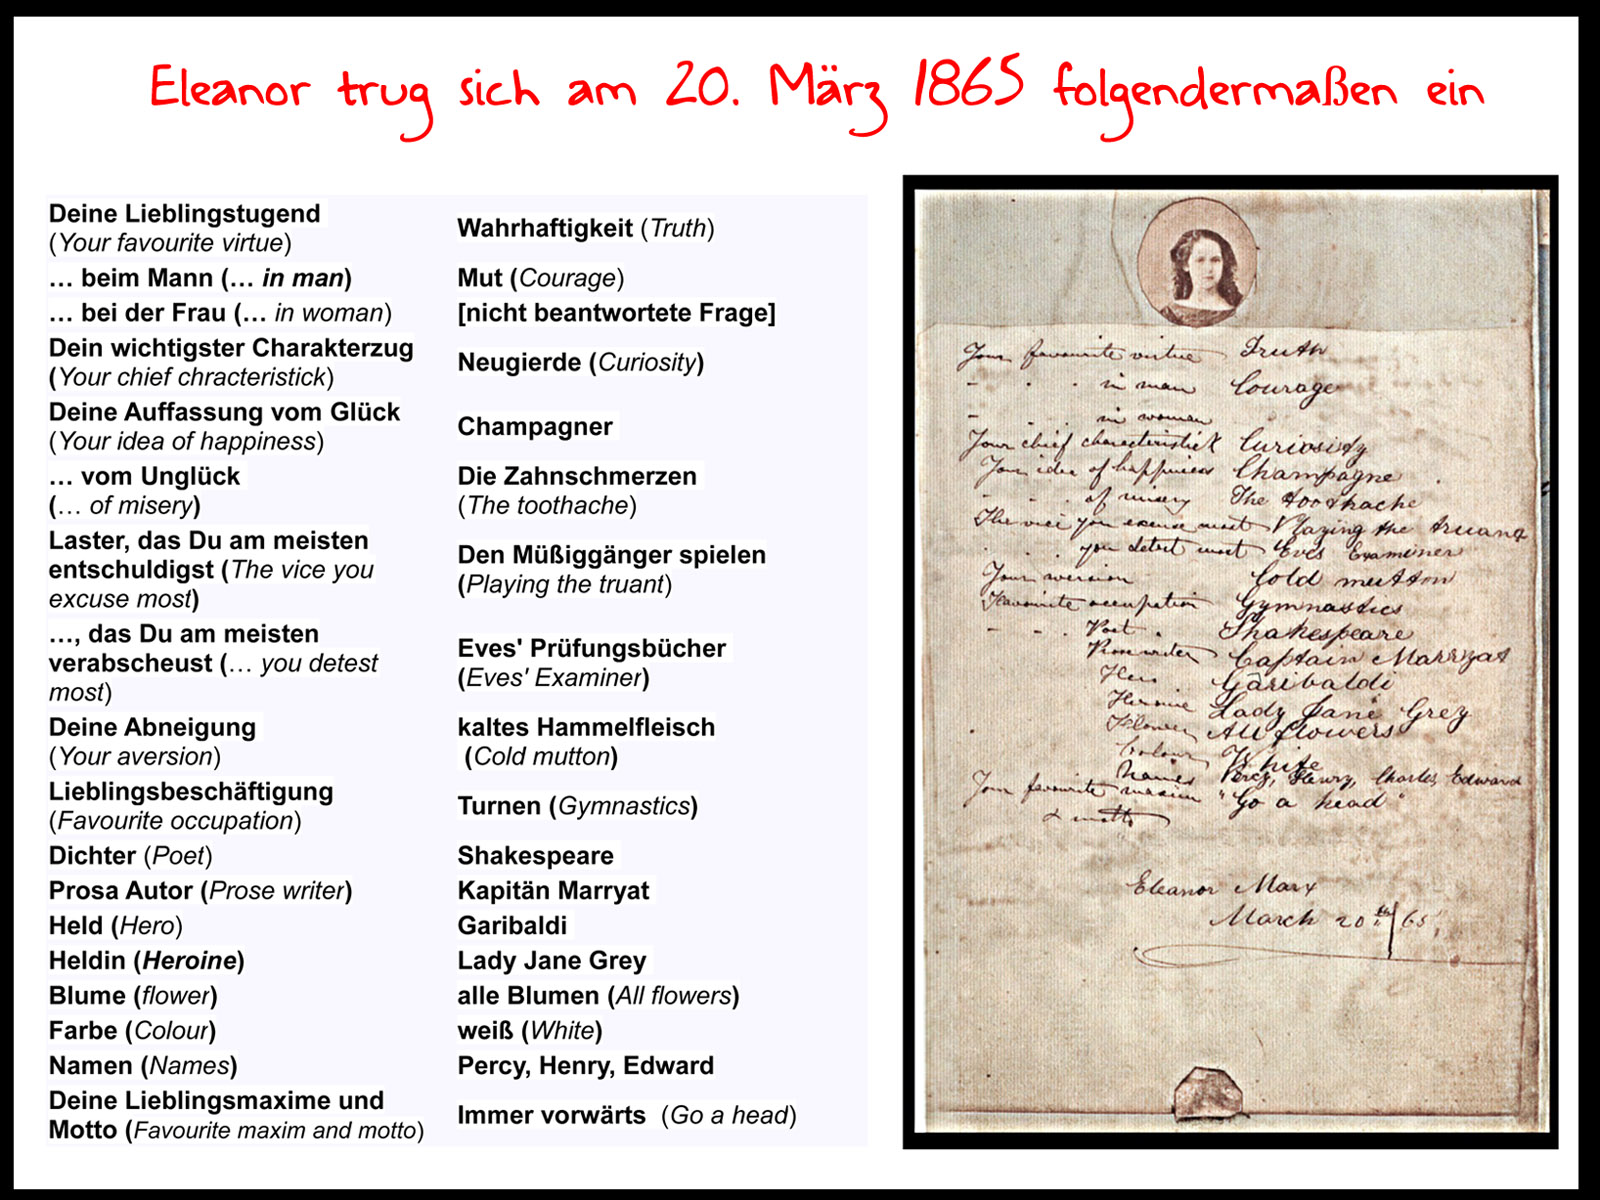 Eleanor trug sich am 20. März 1865 folgendermaßen ein
Deine Lieblingstugend
(Your favourite virtue)
Wahrhaftigkeit (Truth)
… beim Mann (… in man)
Mut (Courage)
… bei der Frau (… in woman)
[nicht beantwortete Frage]
Dein wichtigster Charakterzug
(Your chief chracteristick)
Neugierde (Curiosity)
Deine Auffassung vom Glück
(Your idea of happiness)
Champagner
… vom Unglück
(… of misery)
Die Zahnschmerzen
(The toothache)
Laster, das Du am meisten
entschuldigst (The vice you
excuse most)
Den Müßiggänger spielen
(Playing the truant)
…, das Du am meisten
verabscheust (… you detest
most)
Eves' Prüfungsbücher
(Eves' Examiner)
Deine Abneigung
(Your aversion)
kaltes Hammelfleisch
(Cold mutton)
Lieblingsbeschäftigung
(Favourite occupation)
Turnen (Gymnastics)
Dichter (Poet)
Shakespeare
Prosa Autor (Prose writer)
Kapitän Marryat
Held (Hero)
Garibaldi
Heldin (Heroine)
Lady Jane Grey
Blume (flower)
alle Blumen (All flowers)
Farbe (Colour)
weiß (White)
Namen (Names)
Percy, Henry, Edward
Deine Lieblingsmaxime und
Motto (Favourite maxim and motto)
Immer vorwärts (Go a head)
Your favourite virtue Truth
- . . in man Courage
- . . in woman
Your chief characteristick Curiosity
Your idea of happiness Champagne
- . . of misery The toothache
The vice you excuse most Playing the truant
. . . you detest most Eves Examiner
Your aversion Cold mutton
Favourite occupation Gymnastics
- - . Poet . Shakespeare
Prose writer Captain Marryat
Hero Garibaldi
Heroine Lady Jane Grey
Flower All flowers
Colour White
Names Percy, Henry, Charles, Edward
Your favourite maxim "Go a head"
& motto
Eleanor Marx
March 20th 65